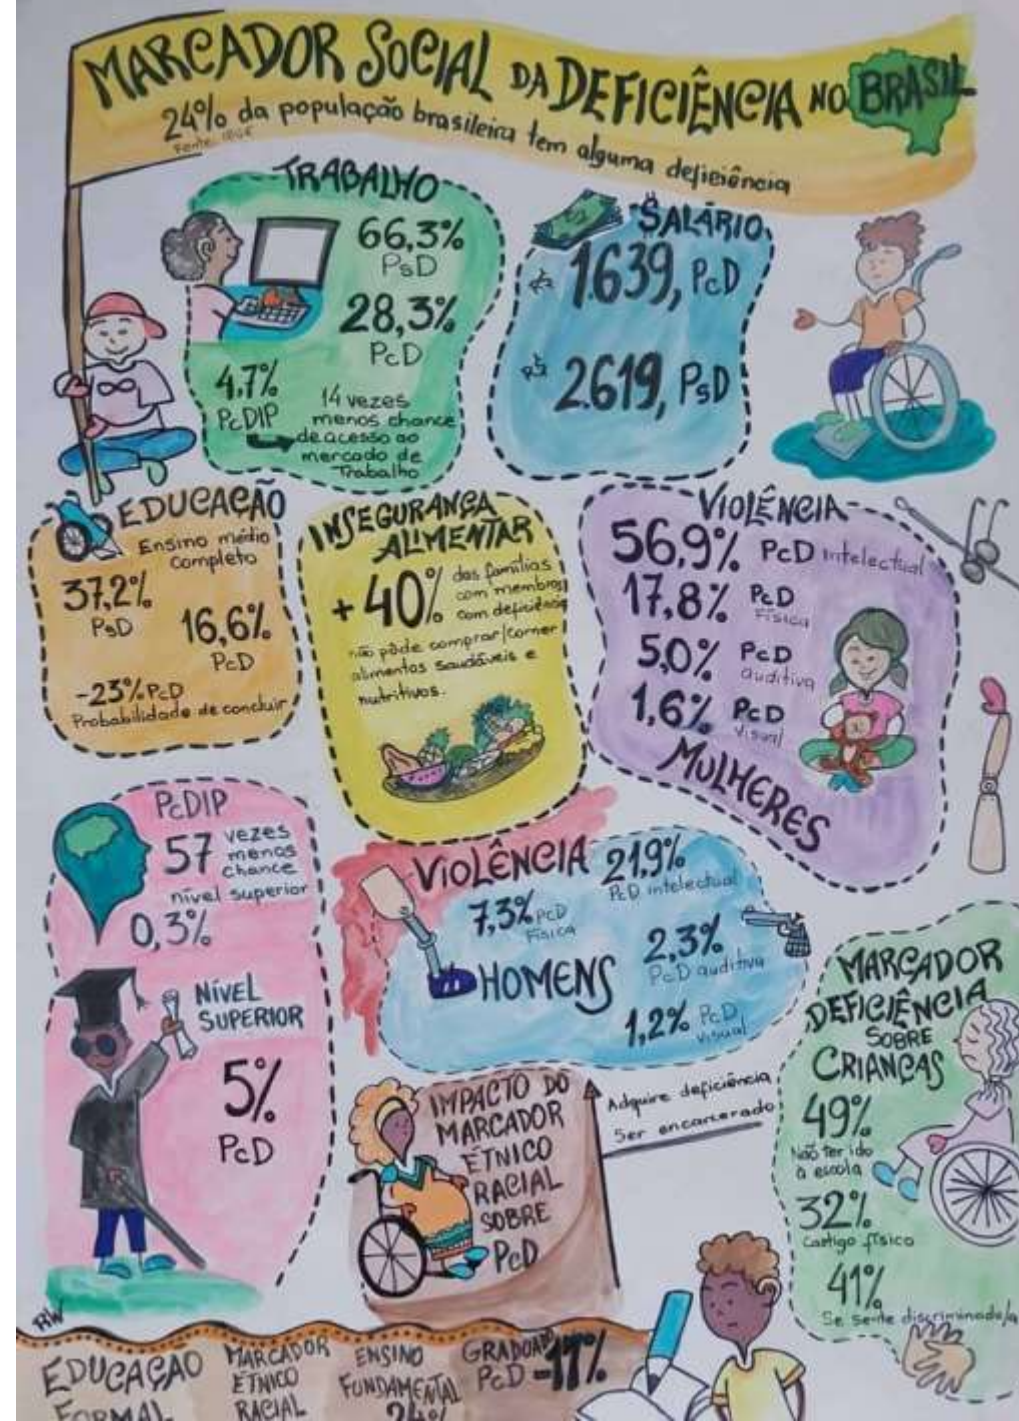 MARCADOR SOCIAL DA DEFICIÊNCIA NO BRASIL
24% da população brasileira tem alguma deficiência
Fonte: IBGE
TRABALHO
66,3%
PsD
28,3%
PcD
4,7%
PcDIP
14 vezes
menos chance
de acesso ao
mercado de
Trabalho
SALÁRIO
R$ 1.639, PcD
R$ 2.619, PsD
EDUCAÇÃO
Ensino médio
completo
37,2%
PsD
16,6%
PcD
-23% PcD
Probabilidade de concluir
INSEGURANÇA
ALIMENTAR
+ 40% das famílias
com membros
com deficiência
não pôde comprar/comer
alimentos saudáveis e
nutritivos.
VIOLÊNCIA
56,9% PcD intelectual
17,8% PcD
Física
5,0% PcD
auditiva
1,6% PcD
visual
MULHERES
PcDIP
57 vezes
menos
chance
nível superior
0,3%
NÍVEL
SUPERIOR
5%
PcD
VIOLÊNCIA
21,9%
PcD intelectual
7,3% PcD
Física
2,3%
PcD auditiva
HOMENS
1,2% PcD
visual
IMPACTO DO
MARCADOR
ÉTNICO
RACIAL
SOBRE
PcD
Adquire deficiência
Ser encarcerado
MARCADOR
DEFICIÊNCIA
SOBRE
CRIANÇAS
49%
Não ter ido
à escola
32%
Castigo físico
41%
Se sente discriminado/a
RW
EDUCAÇÃO
FORMAL
MARCADOR
ÉTNICO
RACIAL
ENSINO
FUNDAMENTAL
24%
GRADUADO
PcD -17%